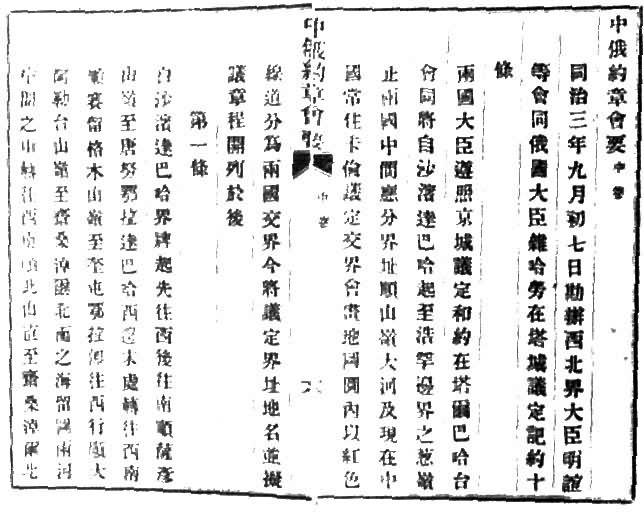 中俄約章會要 中卷
同治三年九月初七日勘辦西北界大臣明誼
等會同俄國大臣雜哈勞在塔城議定記約十
條
兩國大臣遵照京城議定和約在塔爾巴哈台
會同將自沙濱達巴哈起至浩罕邊界之葱嶺
止兩國中間應分界址順山嶺大河及現在中
國常住卡倫議定交界會畫地圖圖內以紅色
中俄約章會要 中卷 六
線道分為兩國交界今將議定界址地名並擬
議章程開列於後
第一條
自沙濱達巴哈界牌起先往西後往南順薩彥
山嶺至唐努鄂拉達巴哈西邊末處轉往西南
順賽留格木山嶺至奎屯鄂拉即往西行順大
阿勒台山嶺至齋桑淖爾北面之海留圖兩河
中間之山轉往西南順此山直至齋桑淖爾北